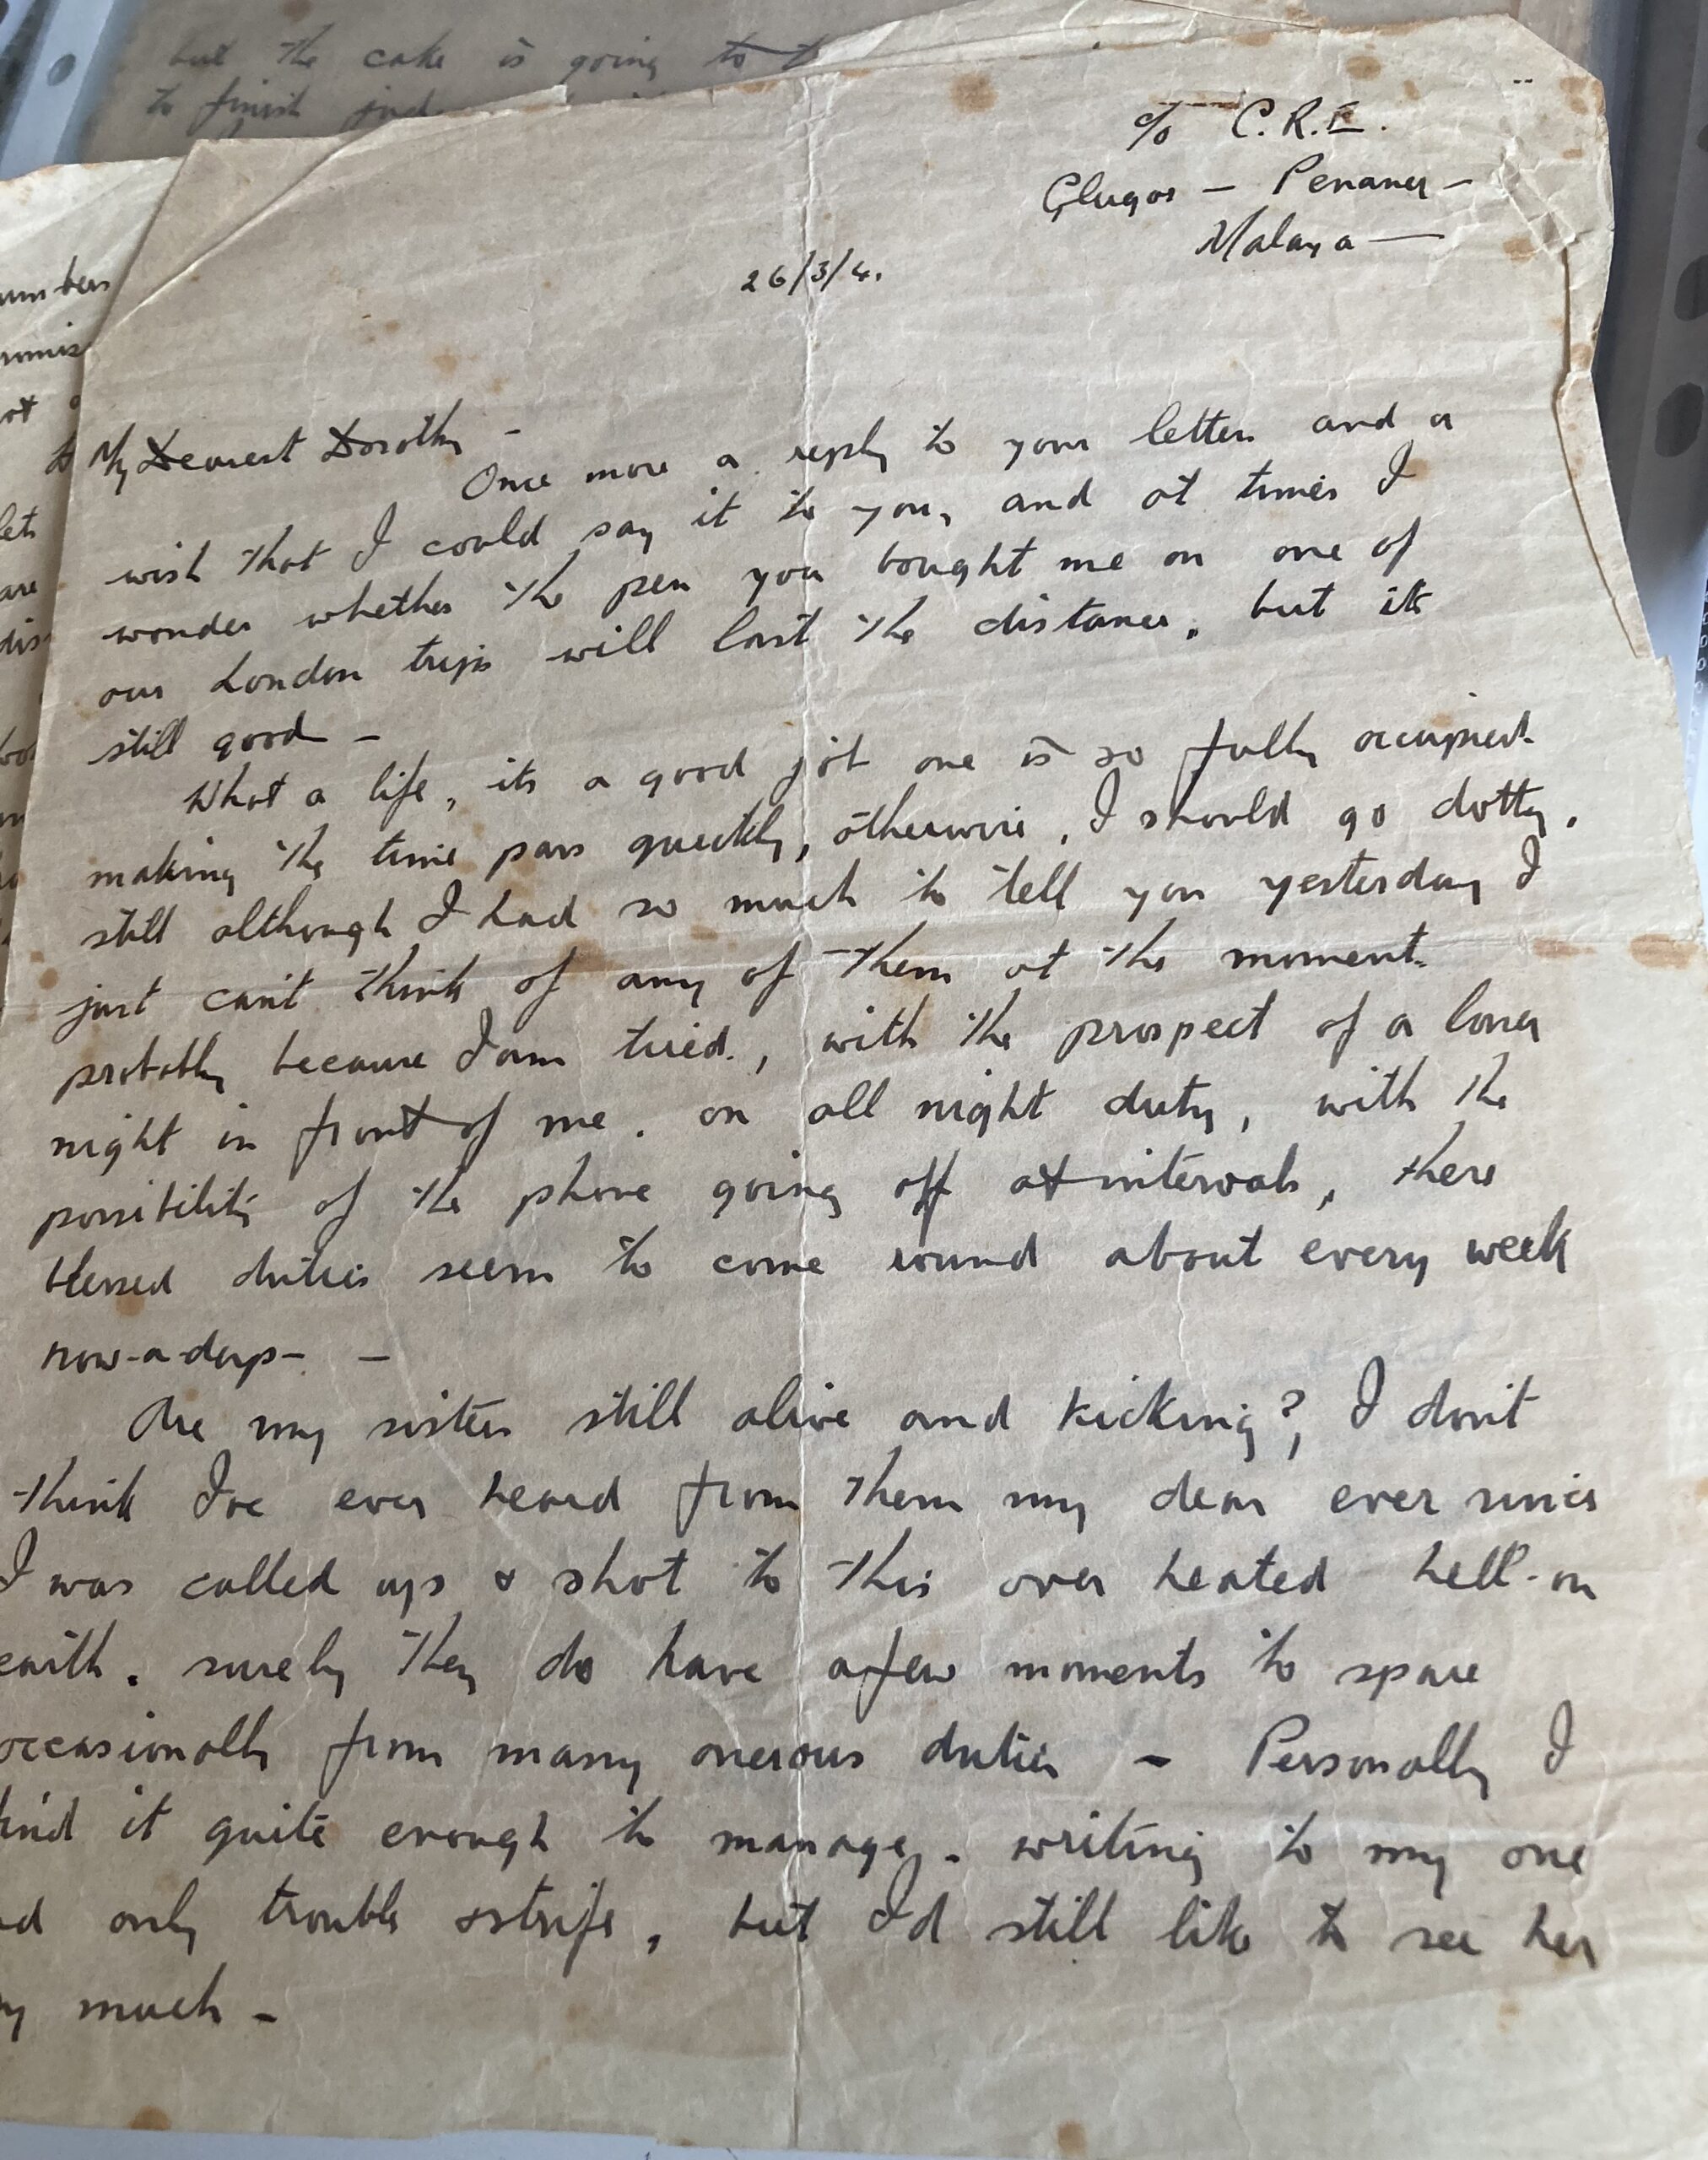 but the cake is going to
to finish
c/o C.R.E.
Glugor — Penang —
Malaya —
26/3/4.
My Dearest Dorothy -
Once more a reply to your letters and a
wish that I could say it to you, and at times I
wonder whether the pen you bought me on one of
our London trips will last the distance, but its
still good -
What a life, its a good job one is so fully occupied
making the time pass quickly, otherwise, I should go dotty.
still although I had so much to tell you yesterday I
just can't think of any of them at the moment
probably because I am tired, with the prospect of a long
night in front of me. on all night duty, with the
possibility of the phone going off at intervals, these
blessed duties seem to come round about every week
now-a-days- -
Are my sisters still alive and kicking?, I don't
think I've ever heard from them my dear ever since
I was called up & shot to this over heated hell-on
earth. surely they do have a few moments to spare
occasionally from many onerous duties - Personally I
find it quite enough to manage. writing to my one
nd only trouble & strife, but I'd still like to see her
ry much -